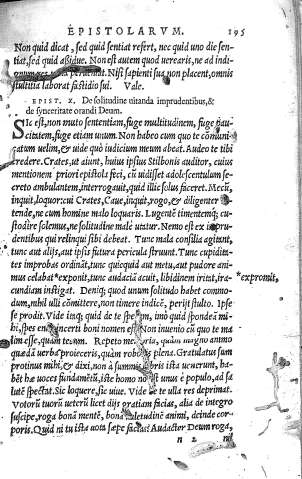 EPISTOLARVM. 195
Non quid dicat, sed quid sentiat refert, nec quid uno die sen-
tiat, sed quid aßidue. Non est autem quod uerearis, ne ad indi-
perueniat. Nisi sapienti sua non placent, omnis
stultitia laborat fastidio sui. Vale.
EPIST. X. De solitudine uitanda imprudentibus, &
de synceritate orandi Deum.
SIc est, non muto sententiam, fuge multitudinem, fuge pau-
citatem, fuge etiam unum. Non habeo cum quo te cōmuni-
catum uelim, & uide quod iudicium meum abeat. Audeo te tibi
credere. Crates, ut aiunt, huius ipsius Stilbonis auditor, cuius
mentionem priori epistola feci, cū uidisset adolescentulum se-
creto ambulantem, interrogauit, quid illic solus faceret. Mecū,
inquit, loquor: cui Crates, Caue, inquit, rogo, & diligenter at-
tende, ne cum homine malo loquaris. Lugentē timentemq; cu-
stodire solemus, ne solitudine male utatur. Nemo est ex impru-
dentibus qui relinqui sibi debeat. Tunc mala consilia agitant,
tunc aut alijs, aut ipsis futura pericula struunt. Tunc cupidita-
tes improbas ordināt, tunc quicquid aut metu, aut pudore ani-
mus celabat *exponit, tunc audaciā acuit, libidinem irritat, ira- *expromit,
cundiam instigat. Deniq; quod unum solitudo habet commo-
dum, nihil ulli cōmittere, non timere indicē, perijt stulto. Ipse
se prodit. Vide inq; quid de te sperem, imò quid spondeā mi-
hi, spes enim incerti boni nomen est. Non inuenio cū quo te ma
lim esse, quàm tecum. Repeto memoria, quàm magno animo
quædā uerba proieceris, quàm roboris plena. Gratulatus sum
protinus mihi, & dixi, non à summis labris ista uenerunt, ha-
bēt hæ uoces fundamētū, iste homo non est unus è populo, ad sa
lutē spectat. Sic loquere, sic uiue. Vide ne te ulla res deprimat.
Votorū tuorū ueterū licet dijs gratiam facias, alia de integro
suscipe, roga bonā mentē, bonā ualetudinē animi, deinde cor-
poris. Quid ni tu ista uota sæpe facias? Audacter Deum roga,
n 2